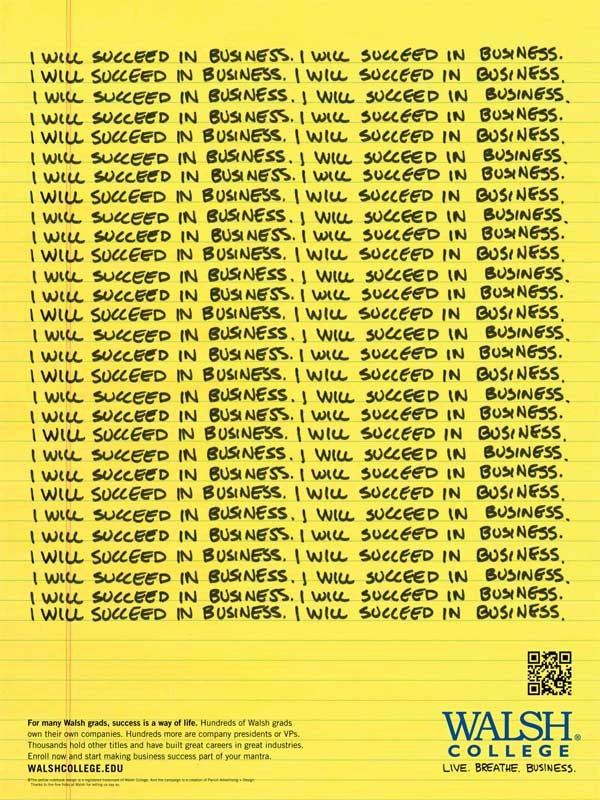 I WILL SUCCEED IN BUSINESS. I WILL SUCCEED IN BUSINESS.
I WILL SUCCEED IN BUSINESS. I WILL SUCCEED IN BUSINESS.
I WILL SUCCEED IN BUSINESS. I WILL SUCCEED IN BUSINESS.
I WILL SUCCEED IN BUSINESS. I WILL SUCCEED IN BUSINESS.
I WILL SUCCEED IN BUSINESS. I WILL SUCCEED IN BUSINESS.
I WILL SUCCEED IN BUSINESS. I WILL SUCCEED IN BUSINESS.
I WILL SUCCEED IN BUSINESS. I WILL SUCCEED IN BUSINESS.
I WILL SUCCEED IN BUSINESS. I WILL SUCCEED IN BUSINESS.
I WILL SUCCEED IN BUSINESS. I WILL SUCCEED IN BUSINESS.
I WILL SUCCEED IN BUSINESS. I WILL SUCCEED IN BUSINESS.
I WILL SUCCEED IN BUSINESS. I WILL SUCCEED IN BUSINESS.
I WILL SUCCEED IN BUSINESS. I WILL SUCCEED IN BUSINESS.
I WILL SUCCEED IN BUSINESS. I WILL SUCCEED IN BUSINESS.
I WILL SUCCEED IN BUSINESS. I WILL SUCCEED IN BUSINESS.
I WILL SUCCEED IN BUSINESS. I WILL SUCCEED IN BUSINESS.
I WILL SUCCEED IN BUSINESS. I WILL SUCCEED IN BUSINESS.
I WILL SUCCEED IN BUSINESS. I WILL SUCCEED IN BUSINESS.
I WILL SUCCEED IN BUSINESS. I WILL SUCCEED IN BUSINESS.
I WILL SUCCEED IN BUSINESS. I WILL SUCCEED IN BUSINESS.
I WILL SUCCEED IN BUSINESS. I WILL SUCCEED IN BUSINESS.
I WILL SUCCEED IN BUSINESS. I WILL SUCCEED IN BUSINESS.
I WILL SUCCEED IN BUSINESS. I WILL SUCCEED IN BUSINESS.
I WILL SUCCEED IN BUSINESS. I WILL SUCCEED IN BUSINESS.
I WILL SUCCEED IN BUSINESS. I WILL SUCCEED IN BUSINESS.
I WILL SUCCEED IN BUSINESS. I WILL SUCCEED IN BUSINESS.
I WILL SUCCEED IN BUSINESS. I WILL SUCCEED IN BUSINESS.
I WILL SUCCEED IN BUSINESS. I WILL SUCCEED IN BUSINESS.
I WILL SUCCEED IN BUSINESS. I WILL SUCCEED IN BUSINESS.
I WILL SUCCEED IN BUSINESS. I WILL SUCCEED IN BUSINESS.
For many Walsh grads, success is a way of life. Hundreds of Walsh grads
own their own companies. Hundreds more are company presidents or VPs.
Thousands hold other titles and have built great careers in great industries.
Enroll now and start making business success part of your mantra.
WALSHCOLLEGE.EDU
©The yellow notebook design is a registered trademark of Walsh College. And the campaign is a creation of Perich Advertising + Design.
Thanks to the fine folks at Walsh for letting us say so.
WALSH®
COLLEGE
LIVE. BREATHE. BUSINESS.